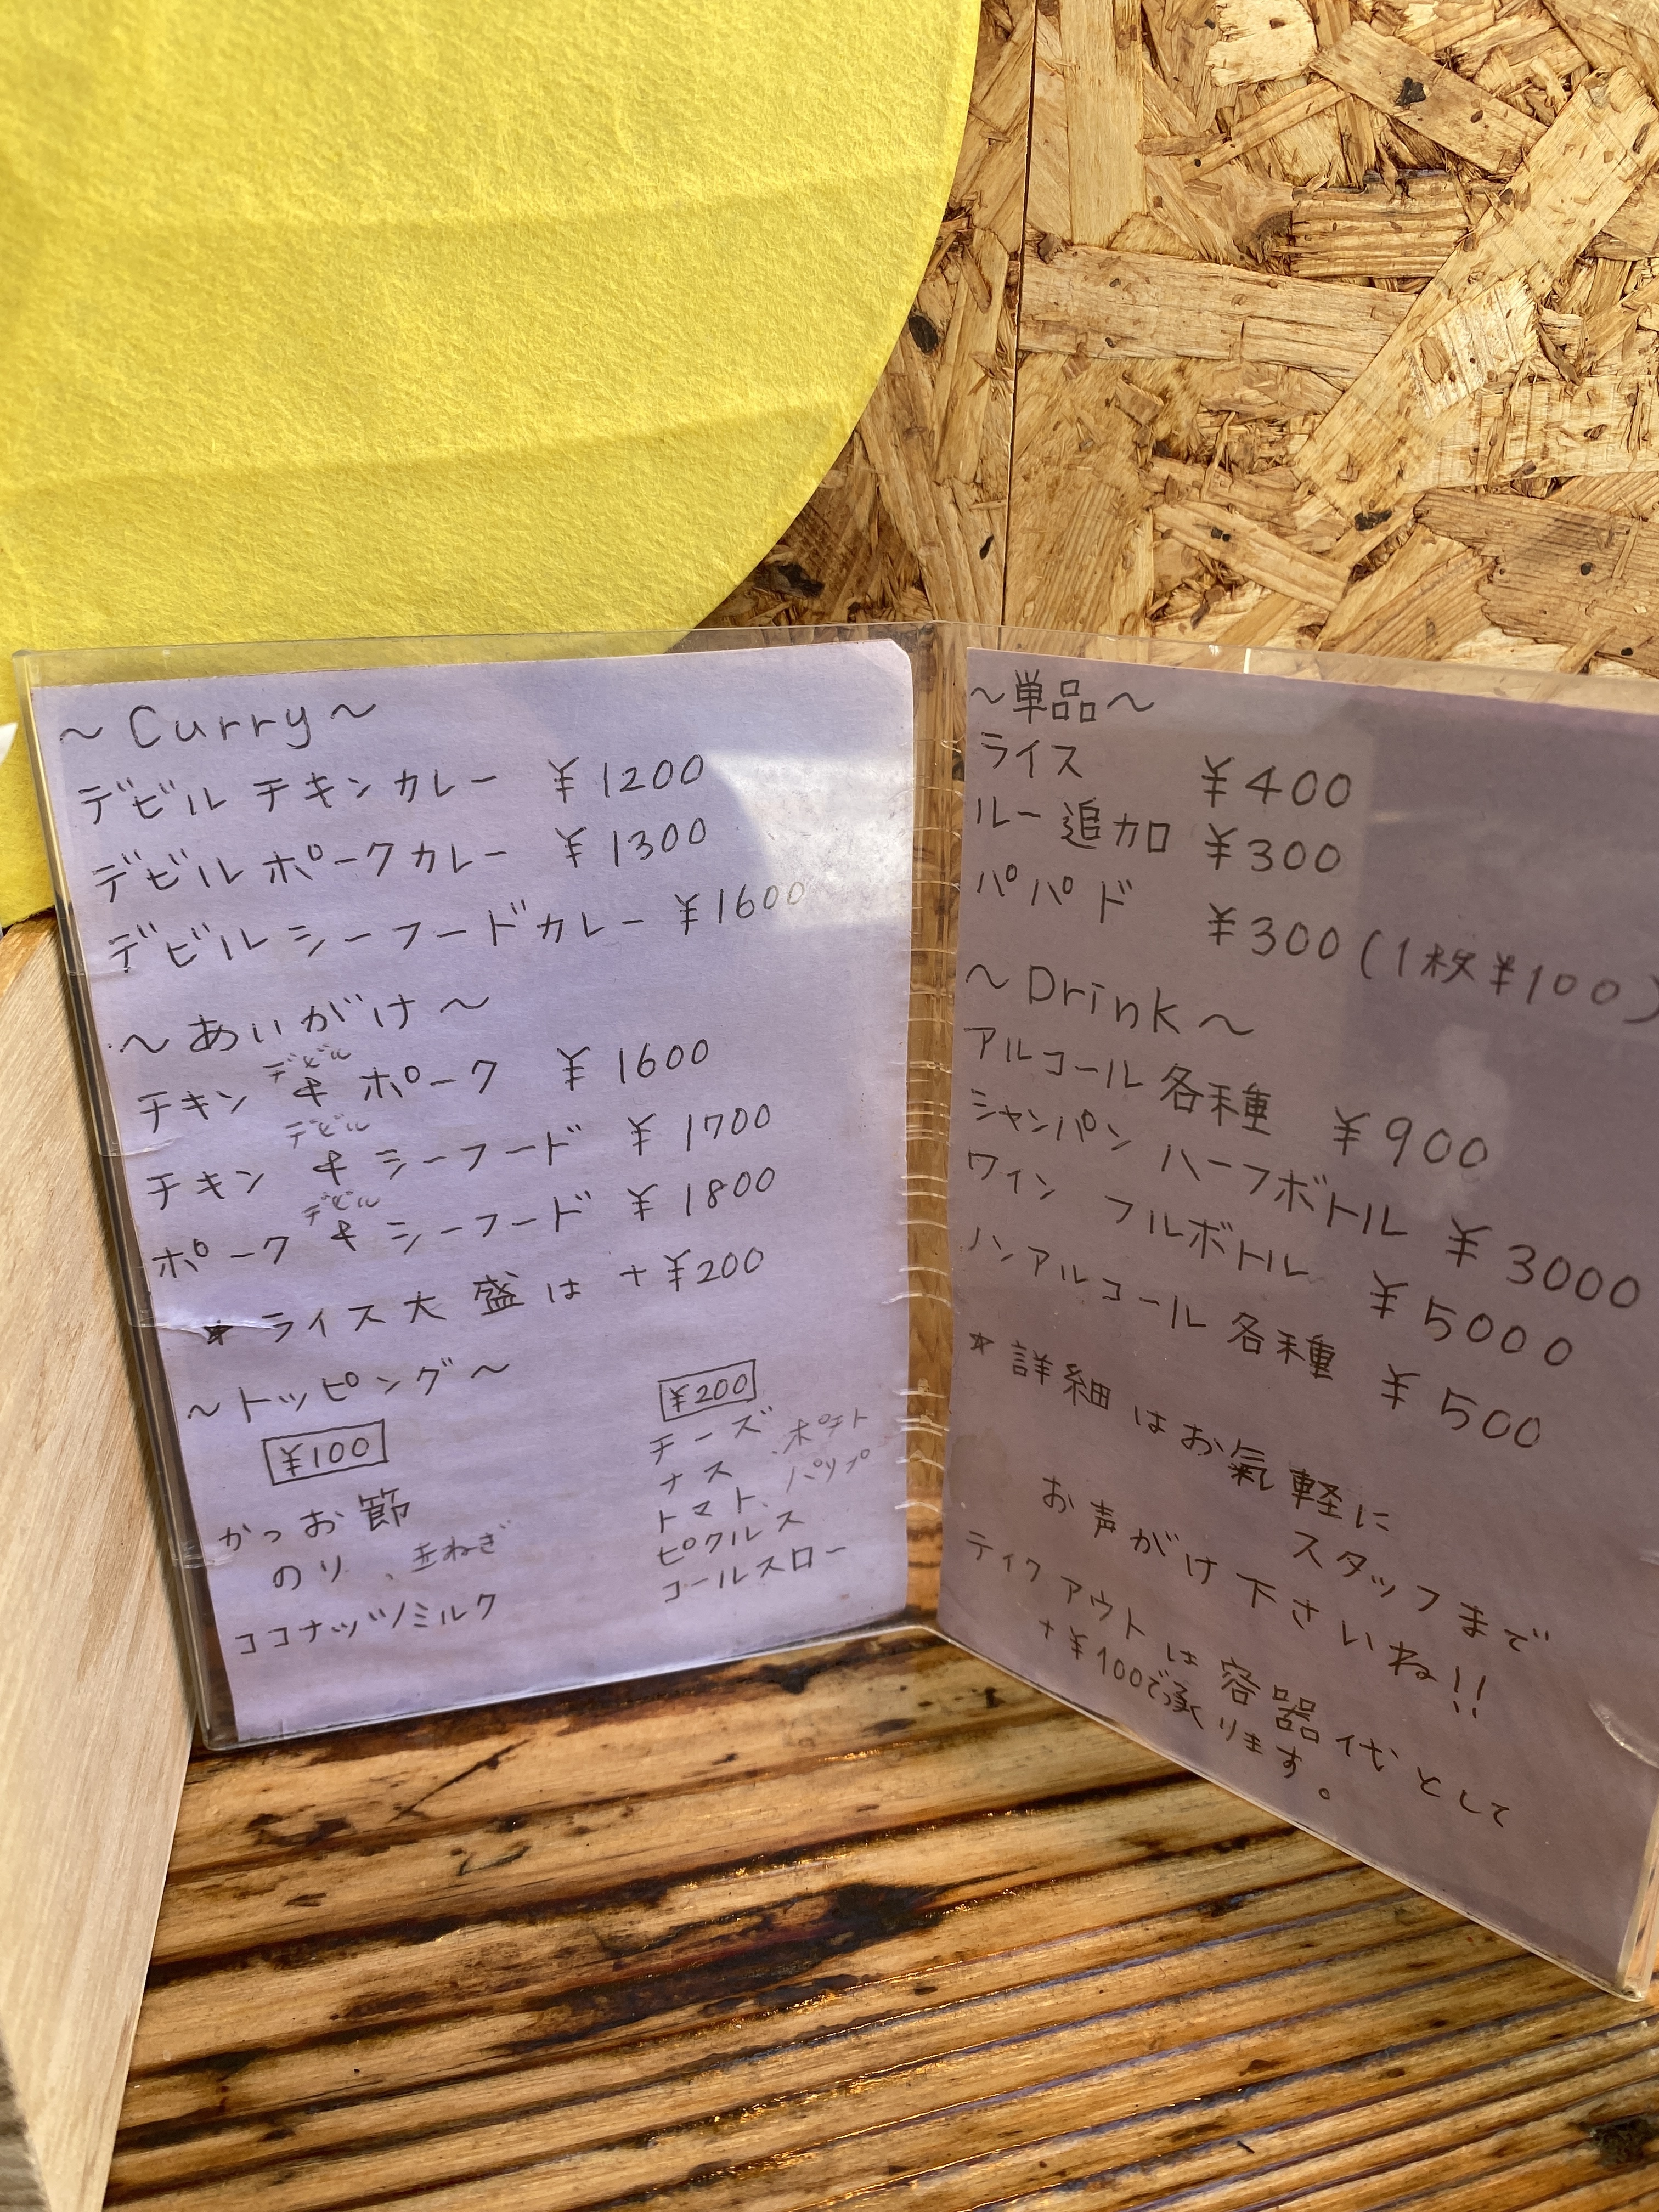 ～Curry～
デビルチキンカレー ¥1200
デビルポークカレー ¥1300
デビルシーフードカレー ¥1600
～あいがけ～
デビル
チキン & ポーク ¥1600
デビル
チキン & シーフード ¥1700
デビル
ポーク & シーフード ¥1800
★ライス大盛は +¥200
～トッピング～
¥100
かつお節
のり、玉ねぎ
ココナッツミルク
¥200
チーズ
ナス、ポテト
トマト、パップ
ピクルス
コールスロー
～単品～
ライス ¥400
ルー追加 ¥300
パパド ¥300(1枚¥100)
～Drink～
アルコール各種 ¥900
シャンパン ハーフボトル ¥3000
ワイン フルボトル ¥5000
ノンアルコール各種 ¥500
★詳細はお氣軽に
スタッフまで
お声がけ下さいね!!
テイクアウトは容器代として
+¥100で承ります。